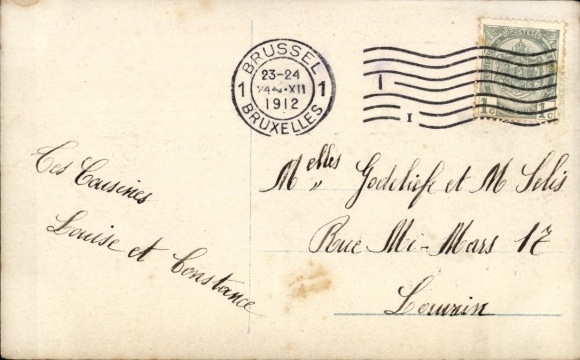 BRUSSEL
1 23-24 1
24 · XII
1912
BRUXELLES
I
1c 1c
Ces Cousines
Louise et Constance
Melles Godeliefe et M Selis
Rue Mi-Mars 17
Louvain